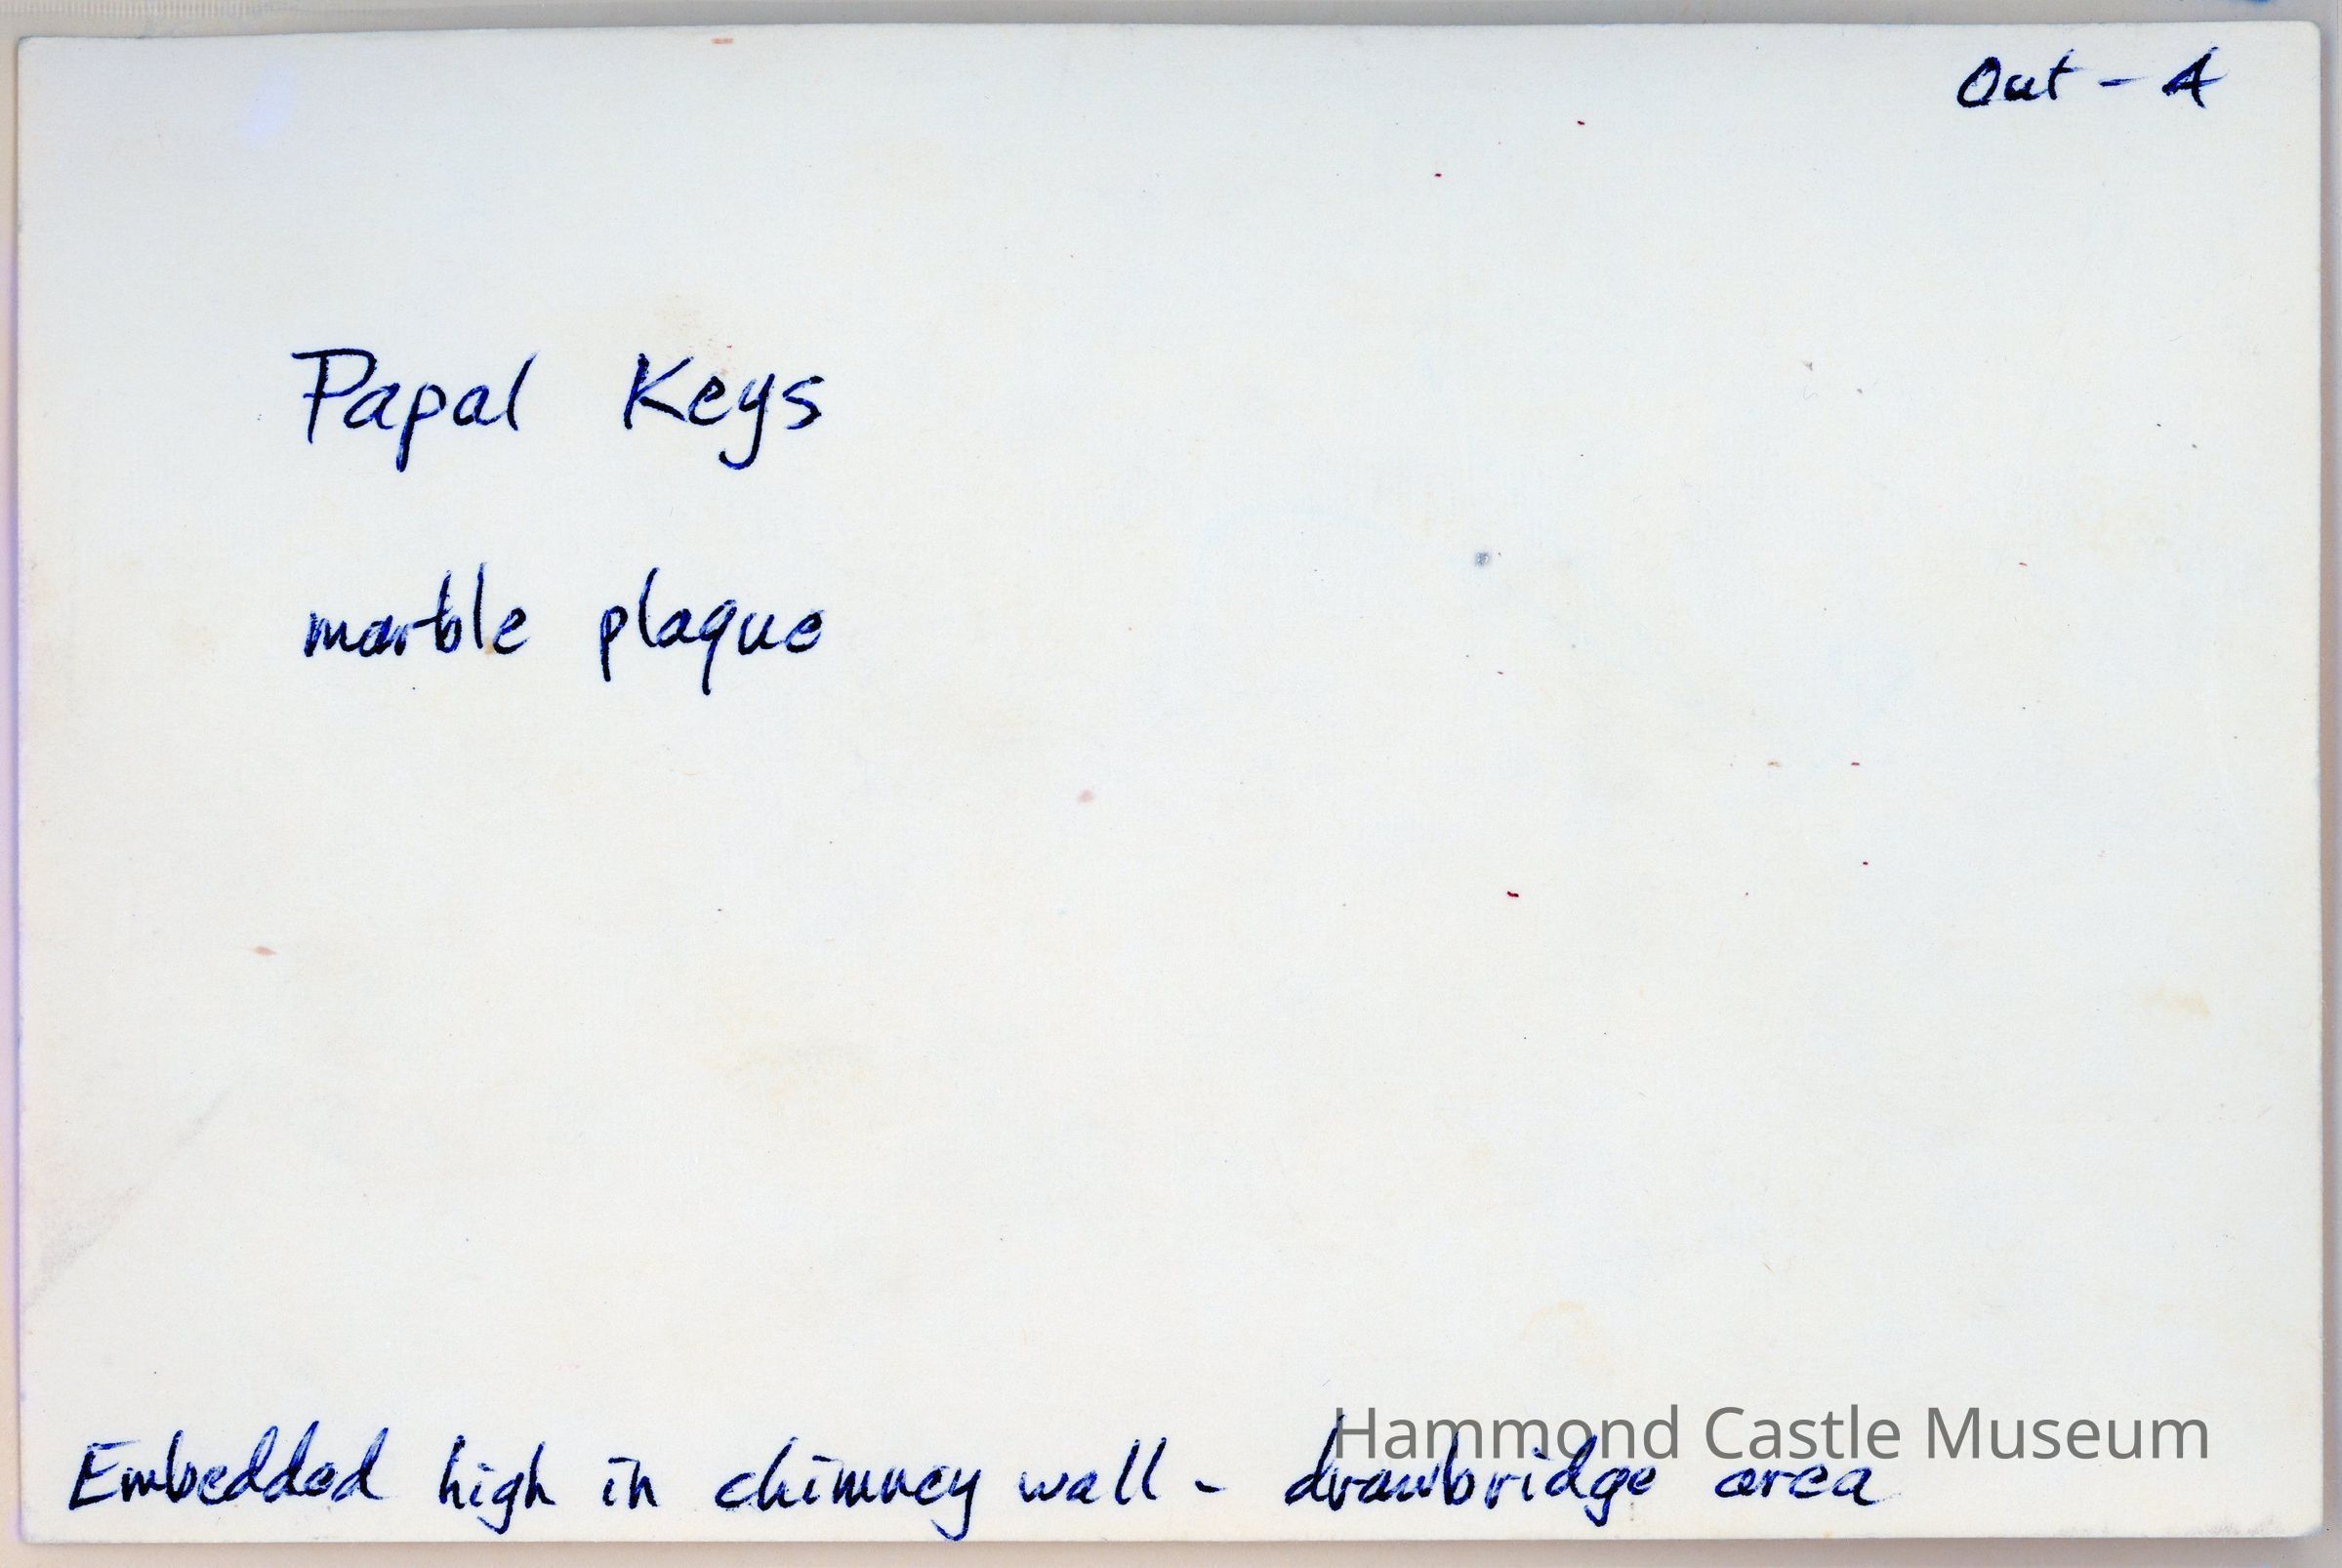 Out - A
Papal Keys
marble plaque
Hammond Castle Museum
Embedded high in chimney wall - drawbridge area